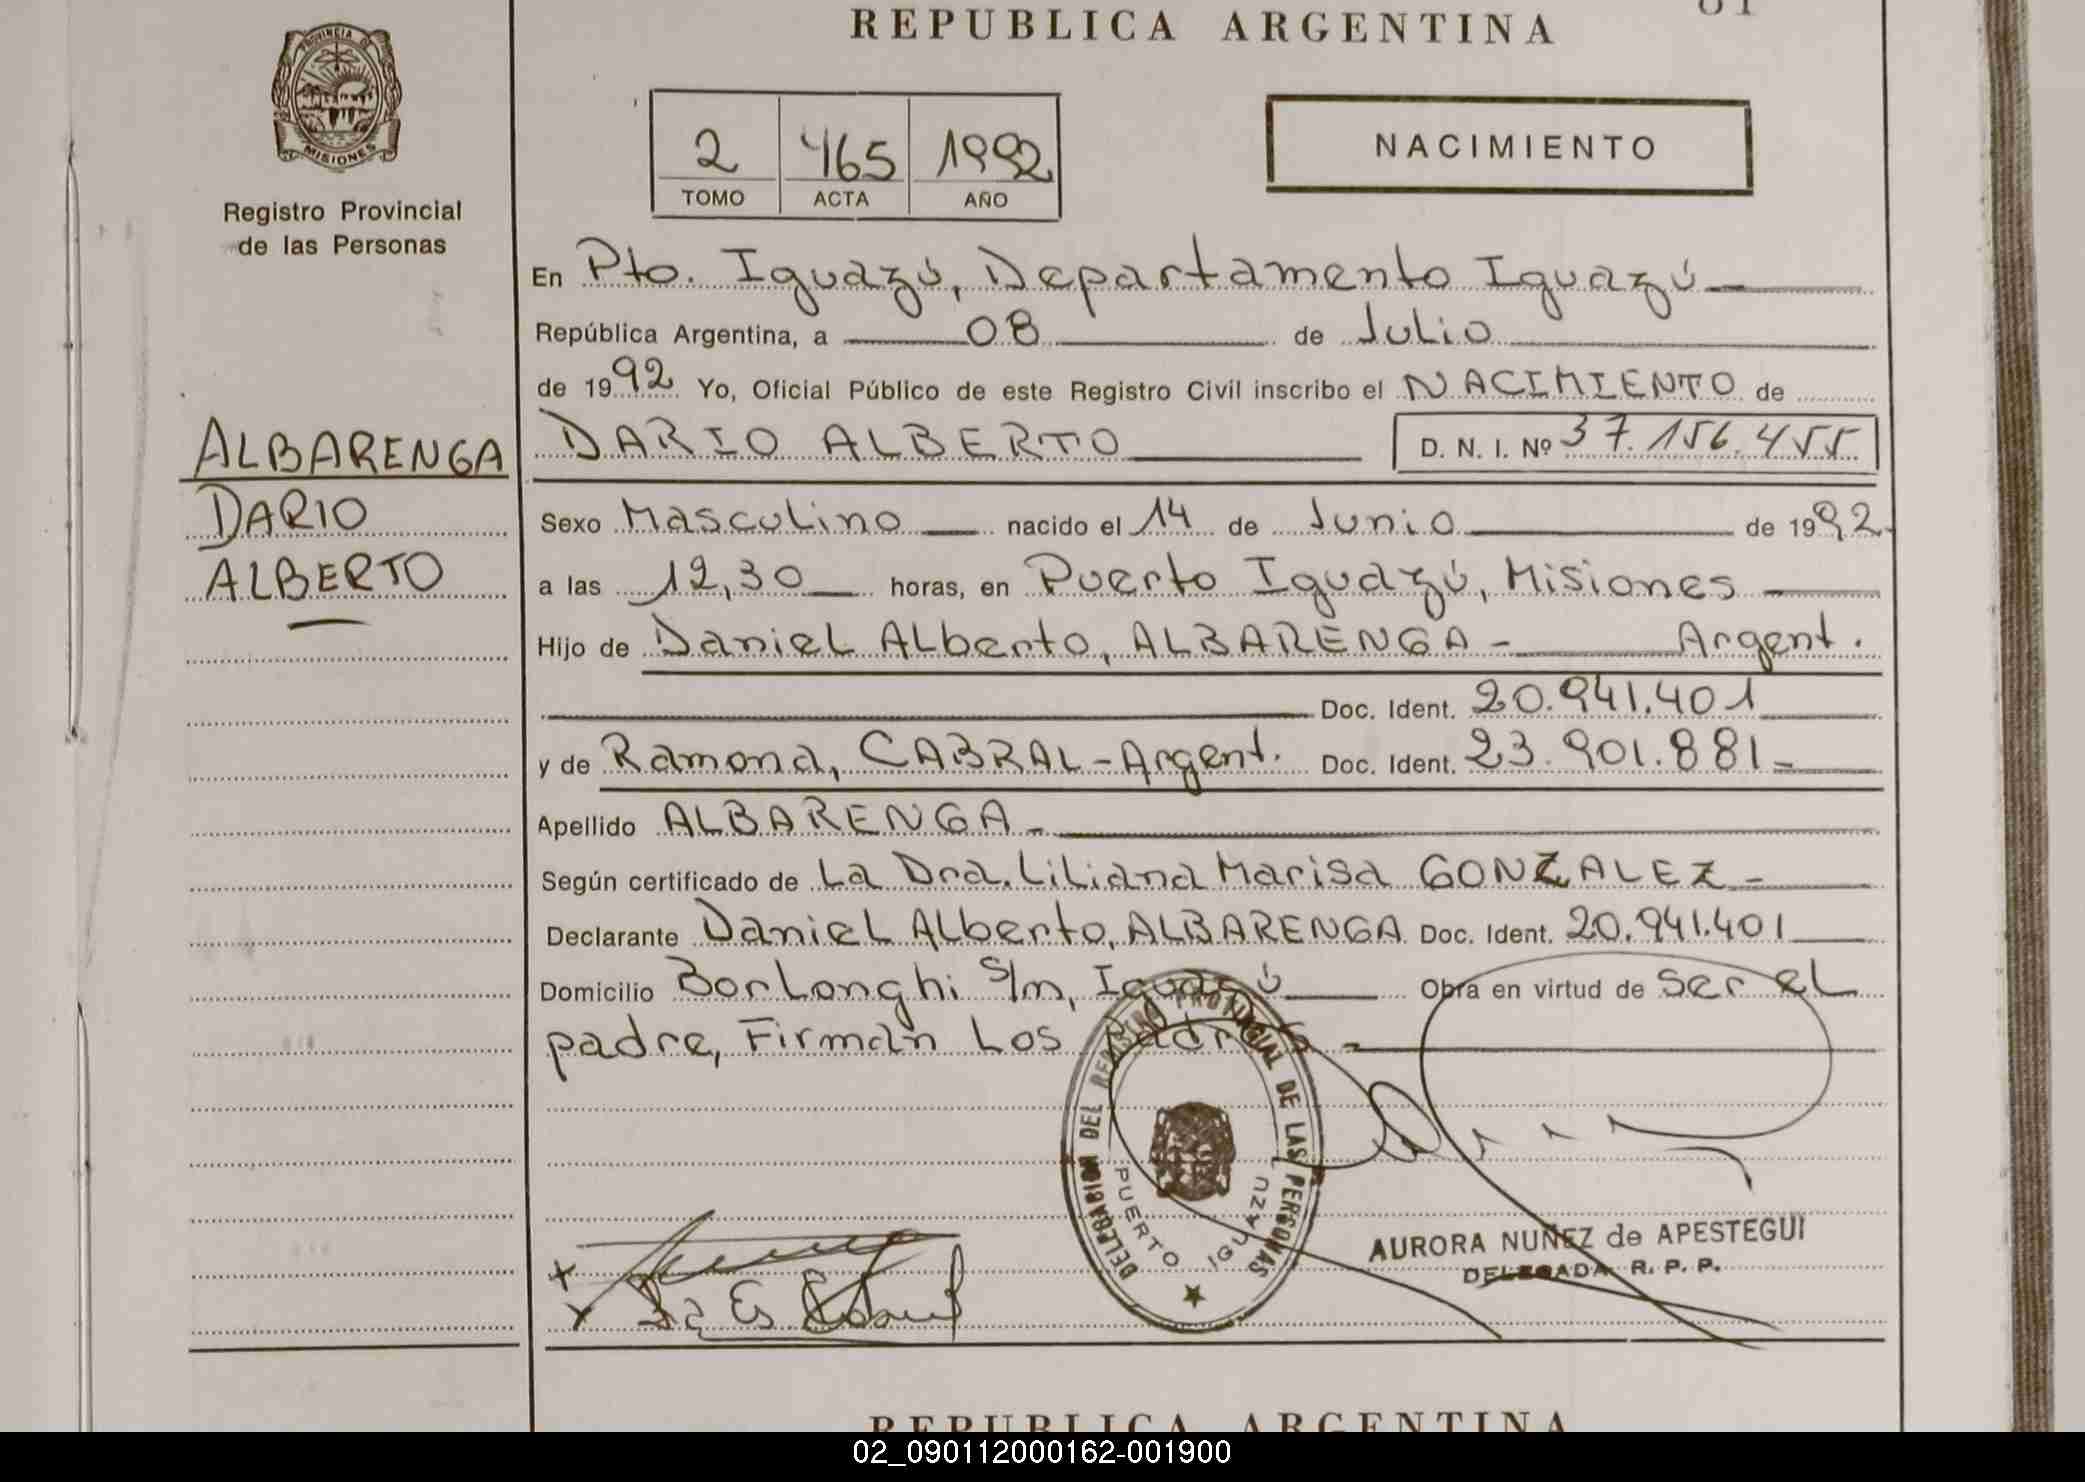 REPUBLICA ARGENTINA
PROVINCIA DE
MISIONES
Registro Provincial
de las Personas
2 465 1992
TOMO ACTA AÑO
NACIMIENTO
En Pto. Iguazú, Departamento Iguazú
República Argentina, a 08 de Julio
de 1992 Yo, Oficial Público de este Registro Civil inscribo el NACIMIENTO de
ALBARENGA
DARIO
ALBERTO
DARIO ALBERTO D. N. I. Nº 37.156.455
Sexo Masculino nacido el 14 de Junio de 1992.
a las 12,30 horas, en Puerto Iguazú, Misiones
Hijo de Daniel Alberto, ALBARENGA - Argent.
Doc. Ident. 20.941.401
y de Ramona, CABRAL - Argent. Doc. Ident. 23.901.881 -
Apellido ALBARENGA -
Según certificado de La Dra. Liliana Marisa GONZALEZ -
Declarante Daniel Alberto, ALBARENGA Doc. Ident. 20.941.401
Domicilio Borlonghi s/n, Iguazú Obra en virtud de ser el
padre, Firman Los Padres -
DELEGACION DEL REGISTRO PROVINCIAL DE LAS PERSONAS
PUERTO IGUAZU
AURORA NUÑEZ de APESTEGUI
DELEGADA R. P. P.
REPUBLICA ARGENTINA
02_090112000162-001900